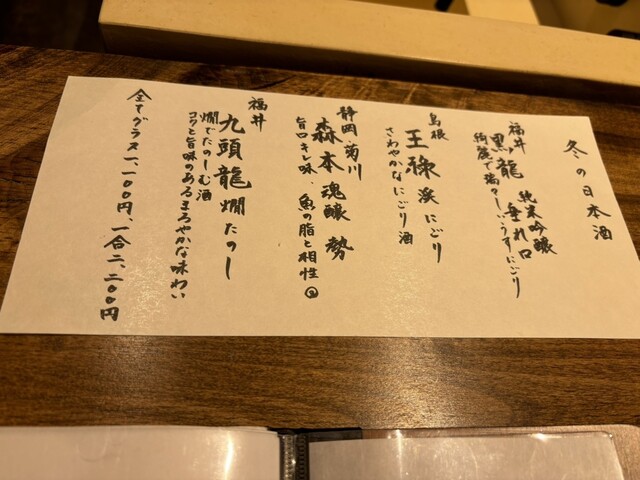 冬の日本酒
福井
黒龍 純米吟醸
垂れ口
綺麗で瑞々しいうすにごり
島根
王祿 渓 にごり
さわやかなにごり酒
静岡・菊川
森本 魂醸 勢
旨口キレ味、魚の脂と相性◎
福井
九頭龍 燗たのし
燗でたのしむ酒
コクと旨味のあるまろやかな味わい
全てグラス一、一〇〇円、一合二、二〇〇円